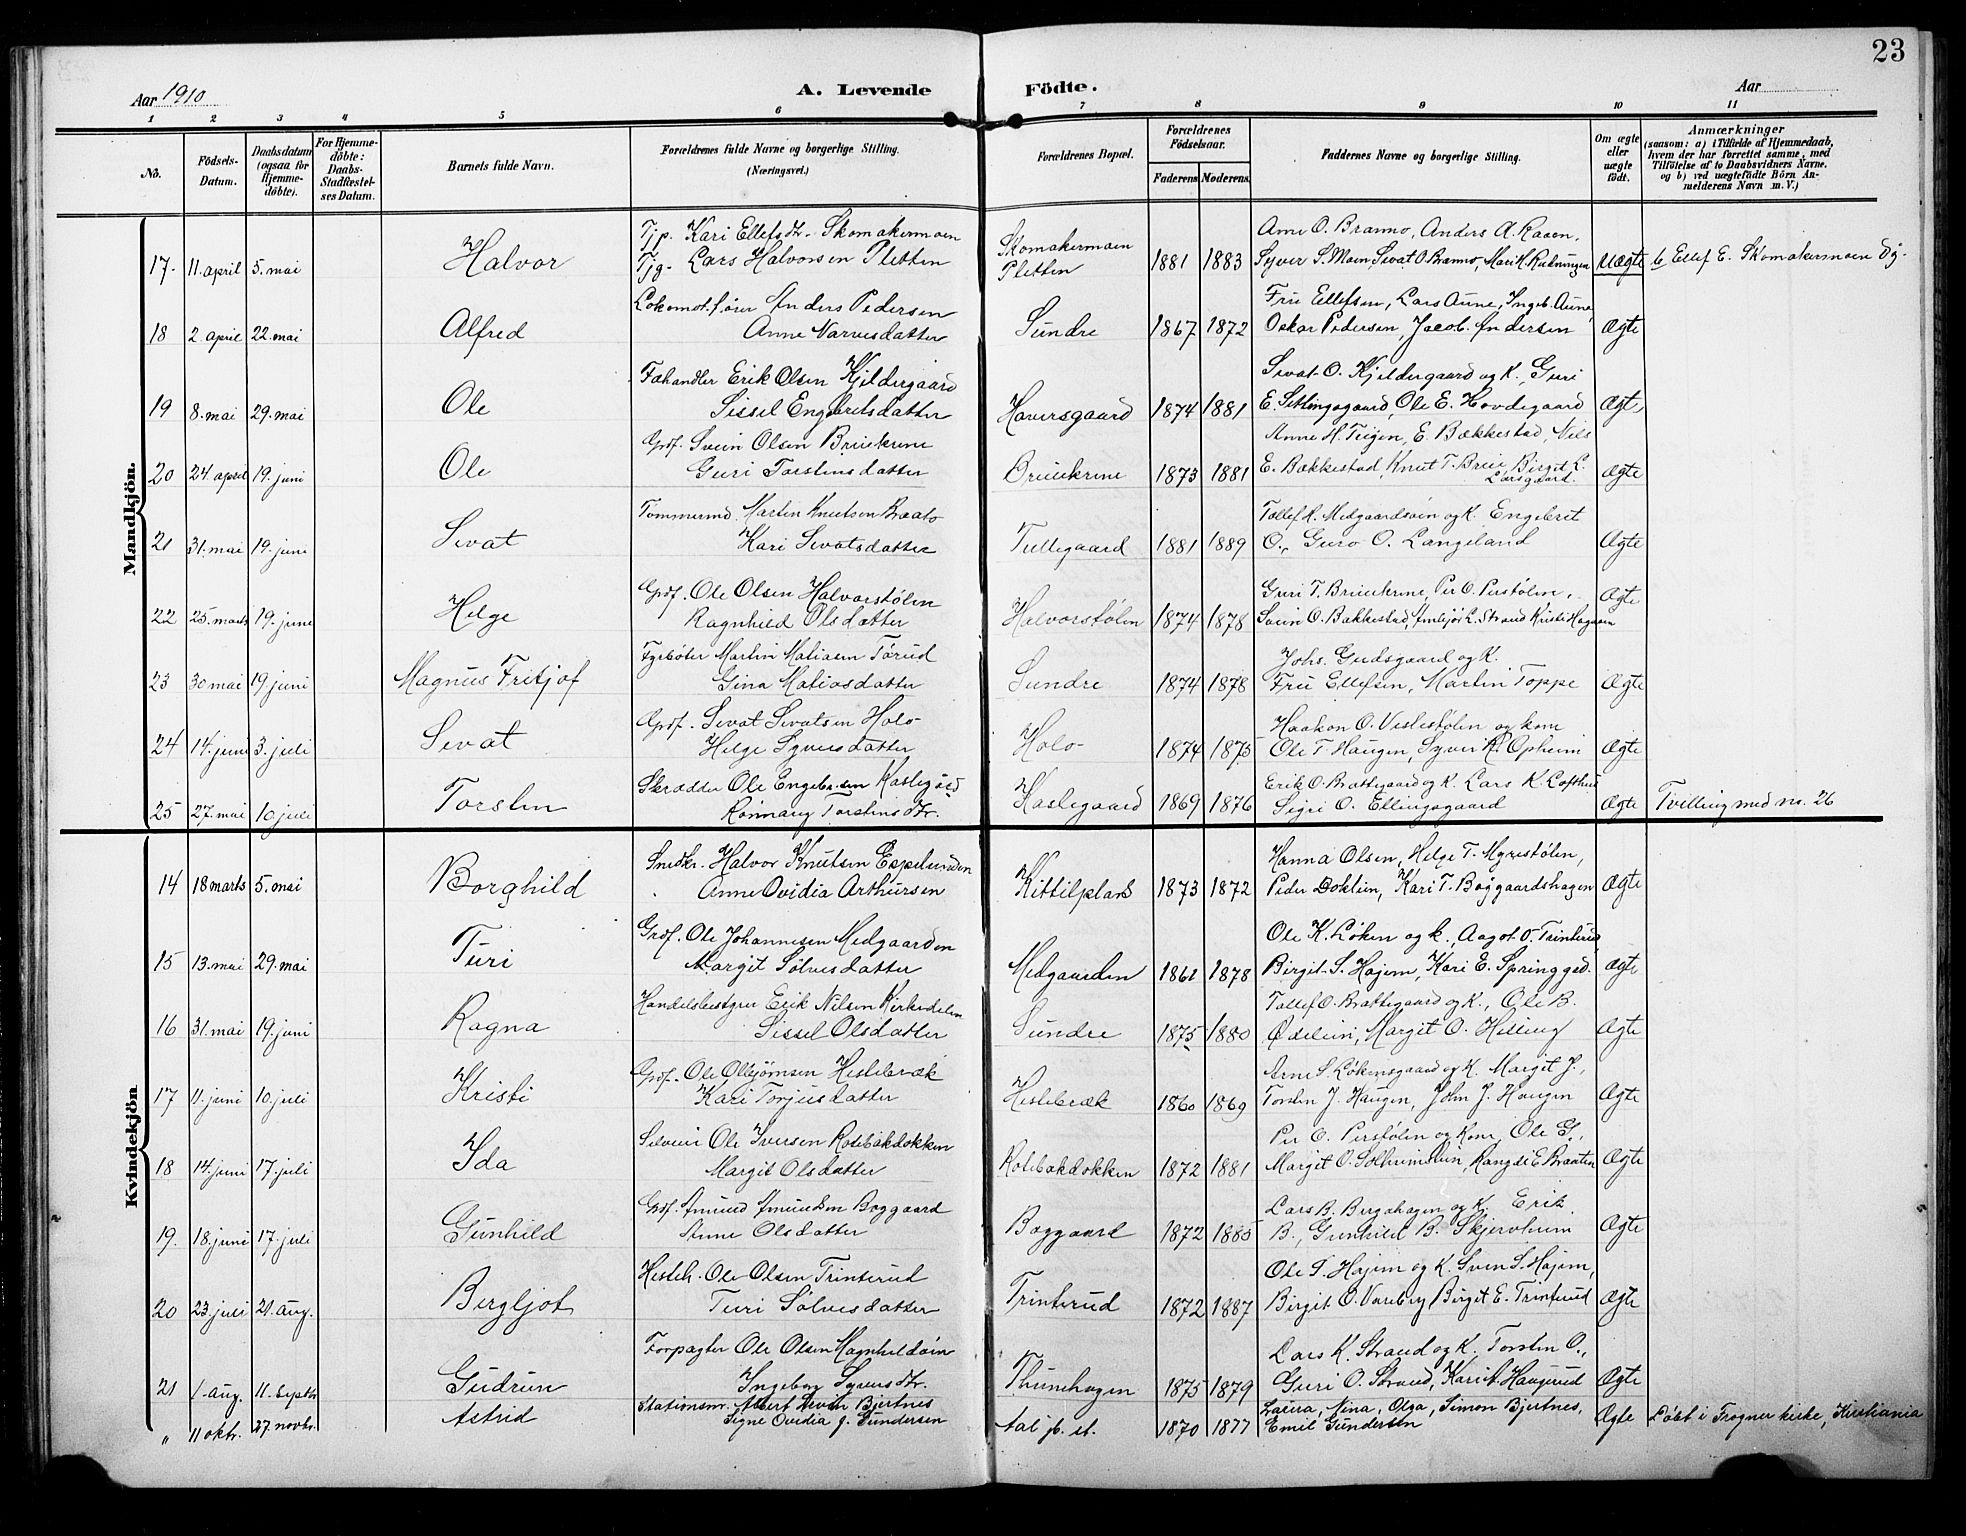 23
Aar 1910
A. Levende Födte.
Aar
1 2 3 4 5 6 7 8 9 10 11
No.
Födsels-Datum.
Daabsdatum (ogsaa for Hjemme-döbte).
For Hjemme-döbte: Daabs-Stadfestel-ses Datum.
Barnets fulde Navn.
Forældrenes fulde Navne og borgerlige Stilling. (Næringsvei.)
Forældrenes Bopæl.
Forældrenes Födselsaar.
Faderens Moderens
Faddernes Navne og borgerlige Stilling.
Om ægte eller uægte födt.
Anmærkninger
(saasom: a) i Tilfælde af Hjemmedaab, hvem der har forrettet samme, med Tilföielse af to Daabsvidners Navne, og b) ved uægtefödte Börn An-melderens Navn m. V.)
Mandkjön.
Tjp. Kari Ellefsdtr. Skomakermoen
Skomakermoen
Arne O. Brænno, Anders A. Raaen,
17. 11. april 5. mai Halvor Tjg. Lars Halvorsen Pletten Pletten 1881 1883 Syver S. Moen, Sevat O. Brænno, Mari K. Uægte b Ellef E. Skomakermoen
Lokomot.fører Anders Pedersen
Fru Ellefsen, Lars Aune, Ingeb. Aune,
18 2 april 22. mai Alfred Anne Narvesdatter Sundre 1867 1872 Oskar Pedersen, Jacob Andersen Ægte
Fæhandler Erik Olsen Kjeldergaard
Sevat O. Kjeldergaard og K., Guri
19 8. mai 29. mai Ole Sissel Engebretsdatter Haversgaard 1874 1881 E. Settingsgaard, Ole E. Hovdegaard Ægte
Gbrf. Svein Olsen Bruekrene
Anne H. Teigen, E. Bækkestad, Nils
20 24. april 19. juni Ole Guri Torstensdatter Bruiekrene 1873 1881 E. Bækkestad, Knut T. Brue, Birgit L. Larsgaard. Ægte
Tømmermd. Martin Knutsen Braato
Tollef K. Medgaardsøin og K. Engebrit
21 31. mai 19. juni Sevat Kari Sevatsdatter Tullegaard 1881 1889 O., Guro O. Langeland Ægte
Gbrf. Ole Olsen Halvorstølen
Guri T. Bruiekrene, Per O. Perstølen,
22 25. marts 19. june Helge Ragnhild Olsdatter Halvorstølen 1874 1878 Svein O. Bakkestad, L. Strand Kristi Hagaen Ægte
Fyrbøter Martin Matiasen Tørud
Johs. Gudsgaard og K.
23 30 mai 19 juni Magnus Fritjof Gina Matiasdatter Sundre 1874 1878 Fru Ellefsen, Martin Toppe Ægte
Gbrf. Sevat Sevatsen Holo
Haakon O. Veslestølen og kone
24 14. juni 3. juli Sevat Helge Syversdatter Holo 1874 1875 Ole T. Haugen, Syver K. Opheim Ægte
Skrædder Ole Engebr.sen Kaslegard
Erik O. Brattegaard og K. Lars K. Lofthus
25 27. mai 10 juli Torsten Rønnaug Torstensdtr. Kaslegaard 1869 1876 Sigri O. Ellingsgaard Ægte Tvilling med no. 26
Kvindekjön
Snedkr. Halvor Knutsen Espelunden
Hanna Olsen, Helge T. Myrestølen,
14 18 marts 5. mai Borghild Anne Ovidia Arthursen Kittilplads 1873 1872 Peder Doklein, Kari T. Bøygaardshagen Ægte
Grdf. Ole Johannesen Medgaarden
Ole K. Løken og k., Aagot O. Trinterud
15 13. mai 29. mai Turi Margit Sølvesdatter Medgaarden 1861 1878 Birgit S. Hajem, Kari E. Springgd. Ægte
Handelsbestyrer Erik Nilsen Kirkedelen
Tollef O. Brattegaard og K., Ole B.
16 31. mai 19. juni Ragna Sissel Olsdatter Sundre 1875 1880 Ødelien, Margit O. Helling Ægte
Gbrf. Ole Olbjørnsen Heslebræk
Arne S. Løkensgaard og K. Margit J.,
17 11. juni 10. juli Kristi Kari Torjusdatter Heslebræk 1860 1869 Torsten J. Haugen, John J. Haugen Ægte
Selveier Ole Iversen Rotebakdokken
Per O. Perstølen og kone, Ole G.,
18 14. juni 17. juli Ida Margit Olsdatter Rotebakdokken 1872 1881 Margit O. Solheimslien, Rangdi E. Braaten Ægte
Gbrf. Amund Amundsen Boggaard
Lars B. Bergahagen og K. Erik
19. 18. juni 17. juli Gunhild Anne Olsdatter Boggaard 1872 1885 B., Gunhild B. Skjervheim Ægte
Hesteh. Ole Olsen Trinterud
Ole S. Hajem og K. Sven S. Hajem,
20 23. juli 21. aug. Bergljot Turi Sølvesdatter Trinterud 1872 1887 Birgit O. Vareberg Birgit E. Trinterud Ægte
Forpagter Ole Olsen Magnhildøin
Lars K. Strand og K. Torsten O.,
21 1. aug. 11. septbr Gudrun Ingeborg Syversdtr. Thunehagen 1875 1879 Guri O. Strand, Kari A. Haugerud Ægte
Stationsm. Albert Bjertnes
Laura, Nina, Olga, Simon Bjertnes,
" 11 oktr. 27. novbr. Astrid Signe Ovidia f. Gundersen Aal jb. st. 1870 1877 Emil Gundersen Ægte Døbt i Frogner kirke, Kristiania